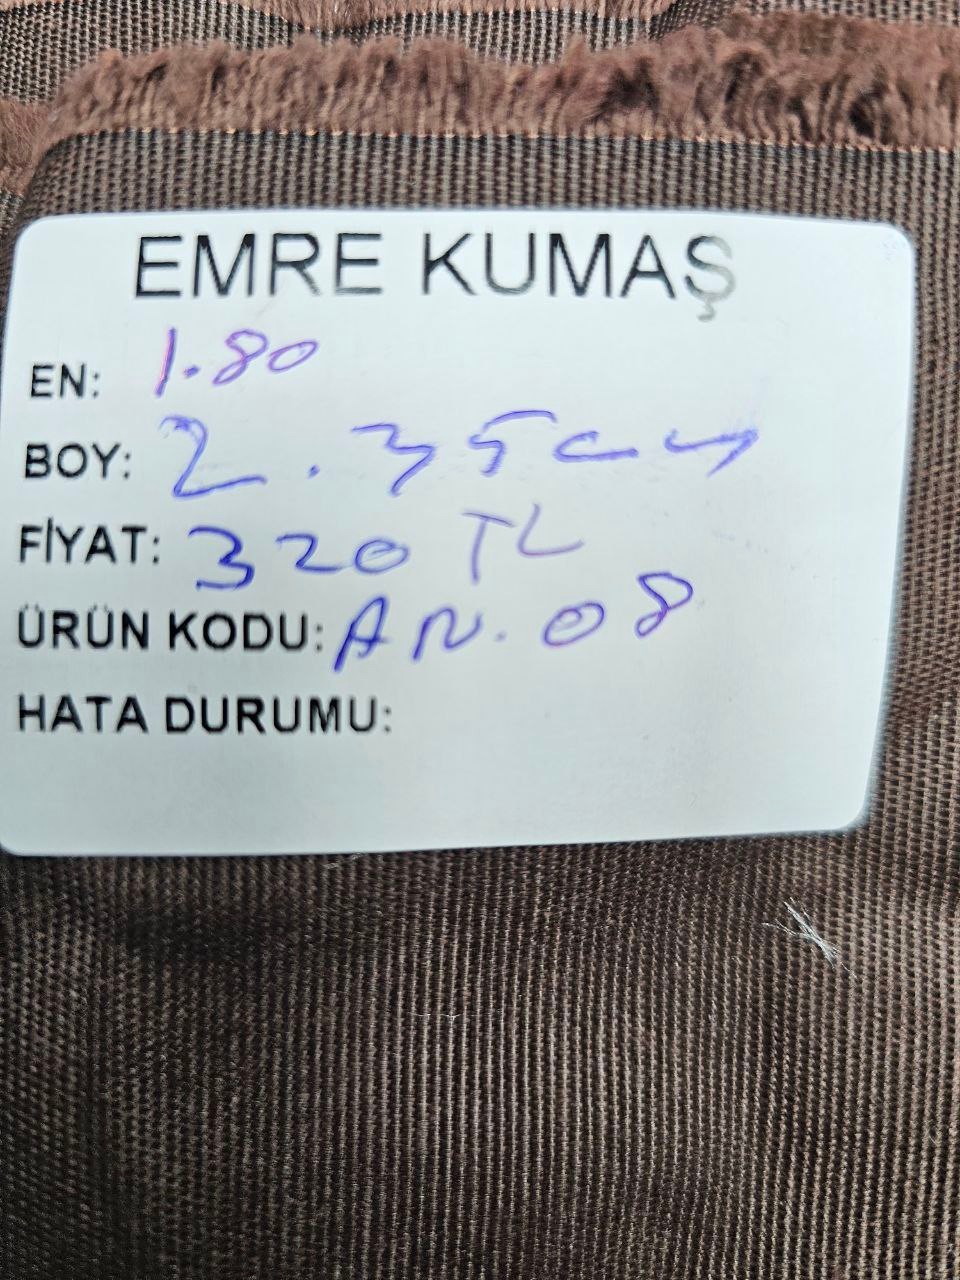 EMRE KUMAŞ
EN: 1.80
BOY: 2.35cm
FİYAT: 320 TL
ÜRÜN KODU: AN.08
HATA DURUMU: